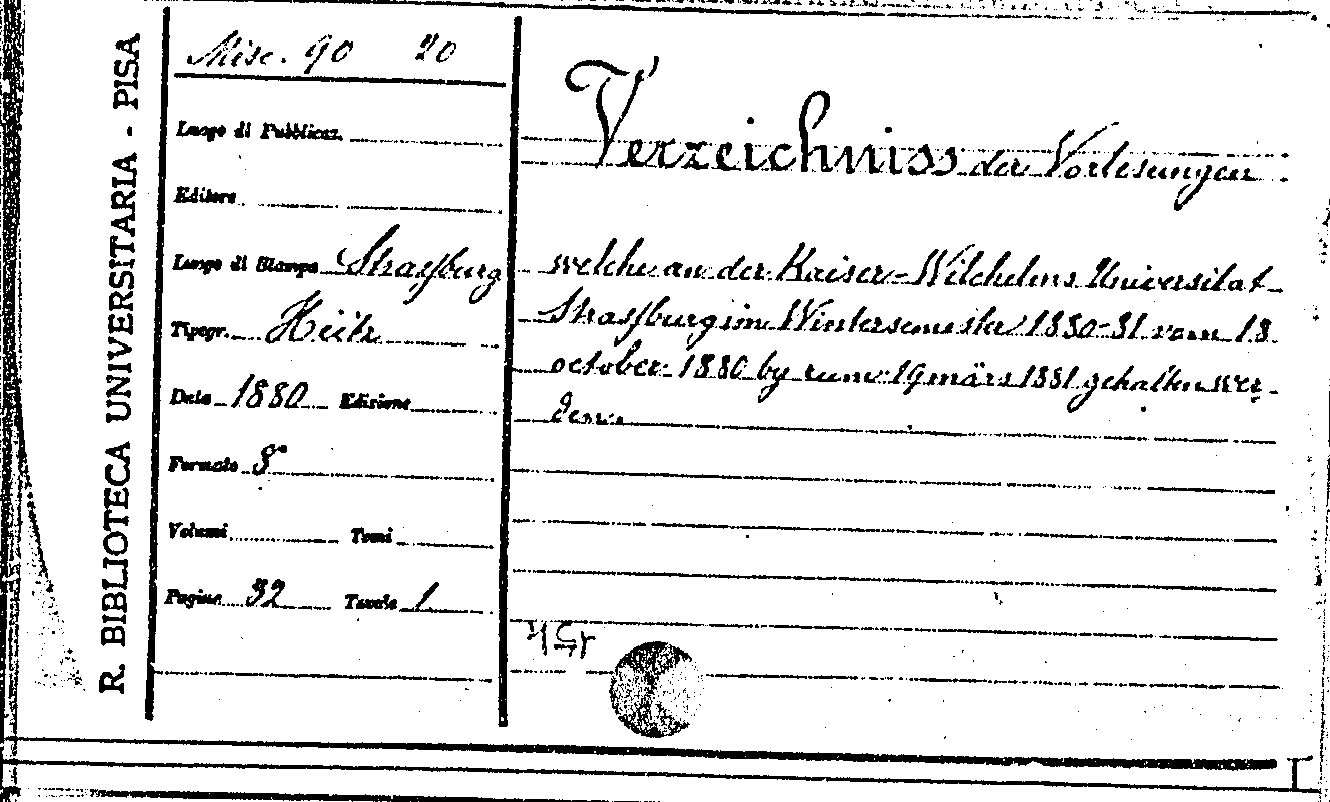 R. BIBLIOTECA UNIVERSITARIA - PISA
Misc. 90 20
Luogo di Pubblicaz.
Editore
Luogo di Stampa Strassburg
Tipogr. Heitz
Data 1880 Edizione
Formato 8°
Volumi Tomi
Pagine 32 Tavole 1
Verzeichniss der Vorlesungen
welche an der Kaiser-Wilhelms Universitat
Strassburg im Wintersemester 1880-81 vom 18
october 1880 by zum 19 märs 1881 gehalten wer-
den.